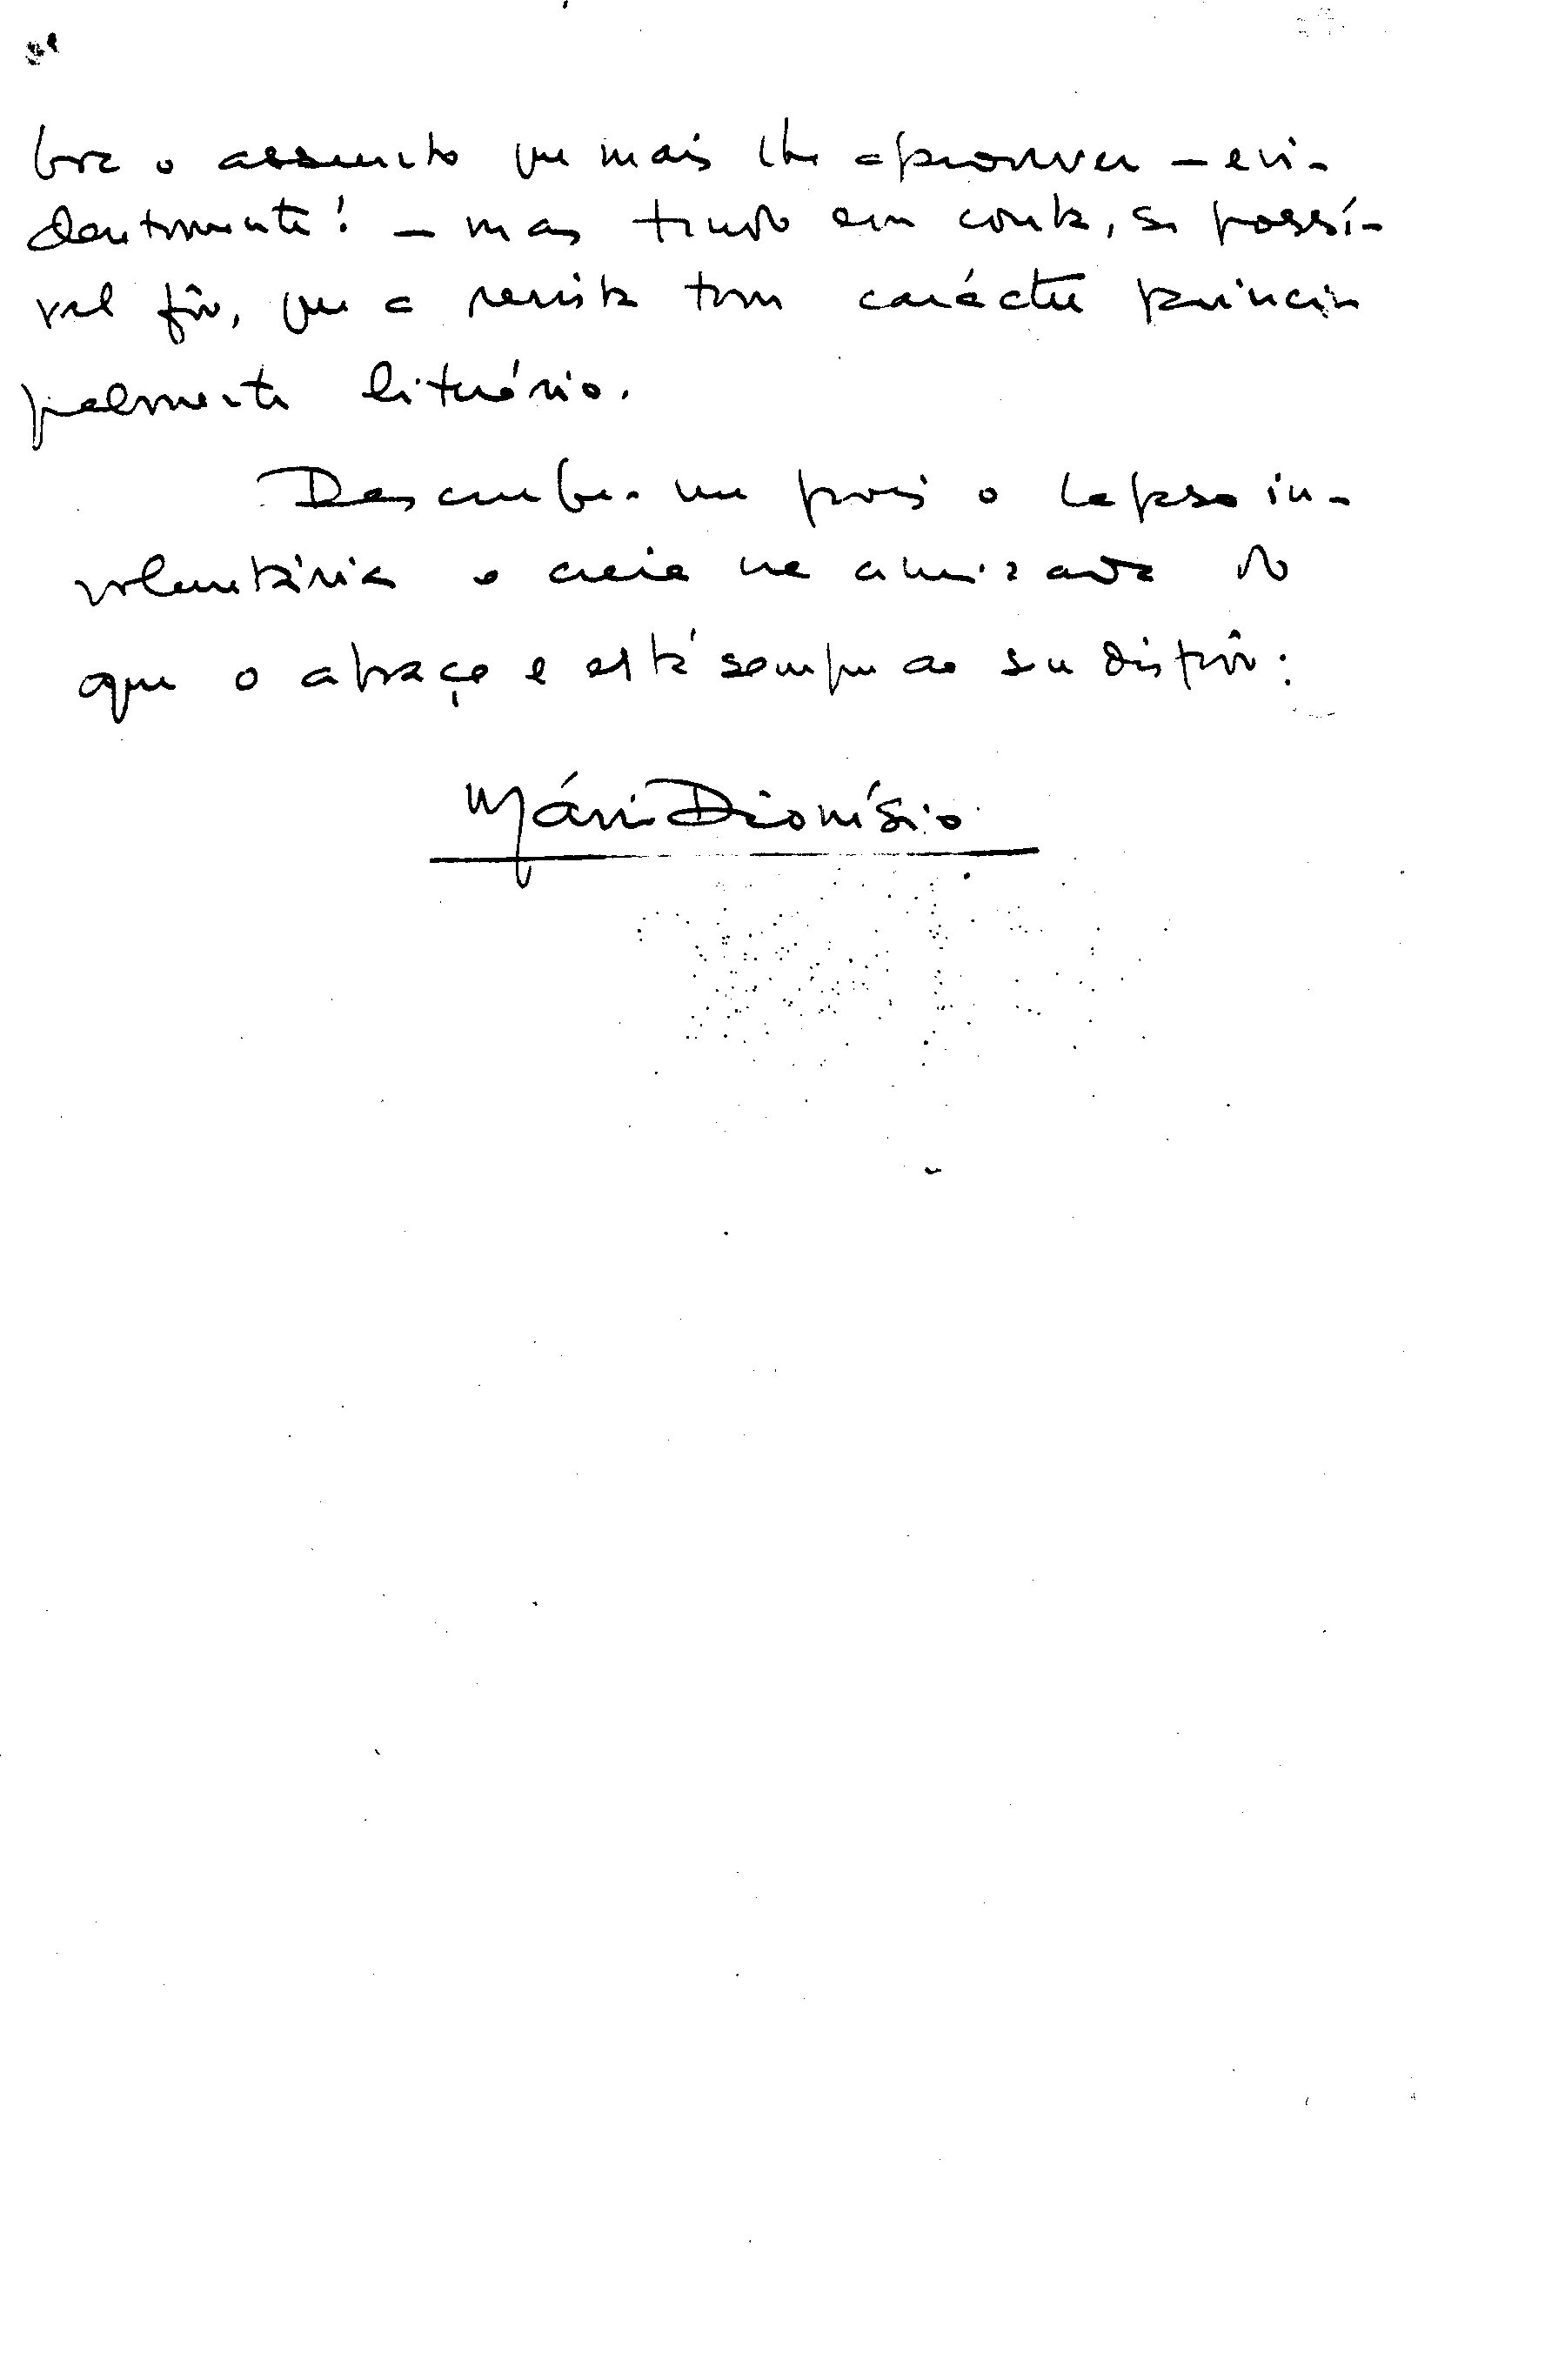 bre o assunto que mais lhe aprouver – evi-
dentemente! – mas tendo em conta, se possí-
vel fôr, que a revista tem carácter princi-
palmente literário.
Desculpe-me pois o lapso in-
voluntário e creia na amizade do
que o abraça e está sempre ao seu dispôr:
Mário Dionísio